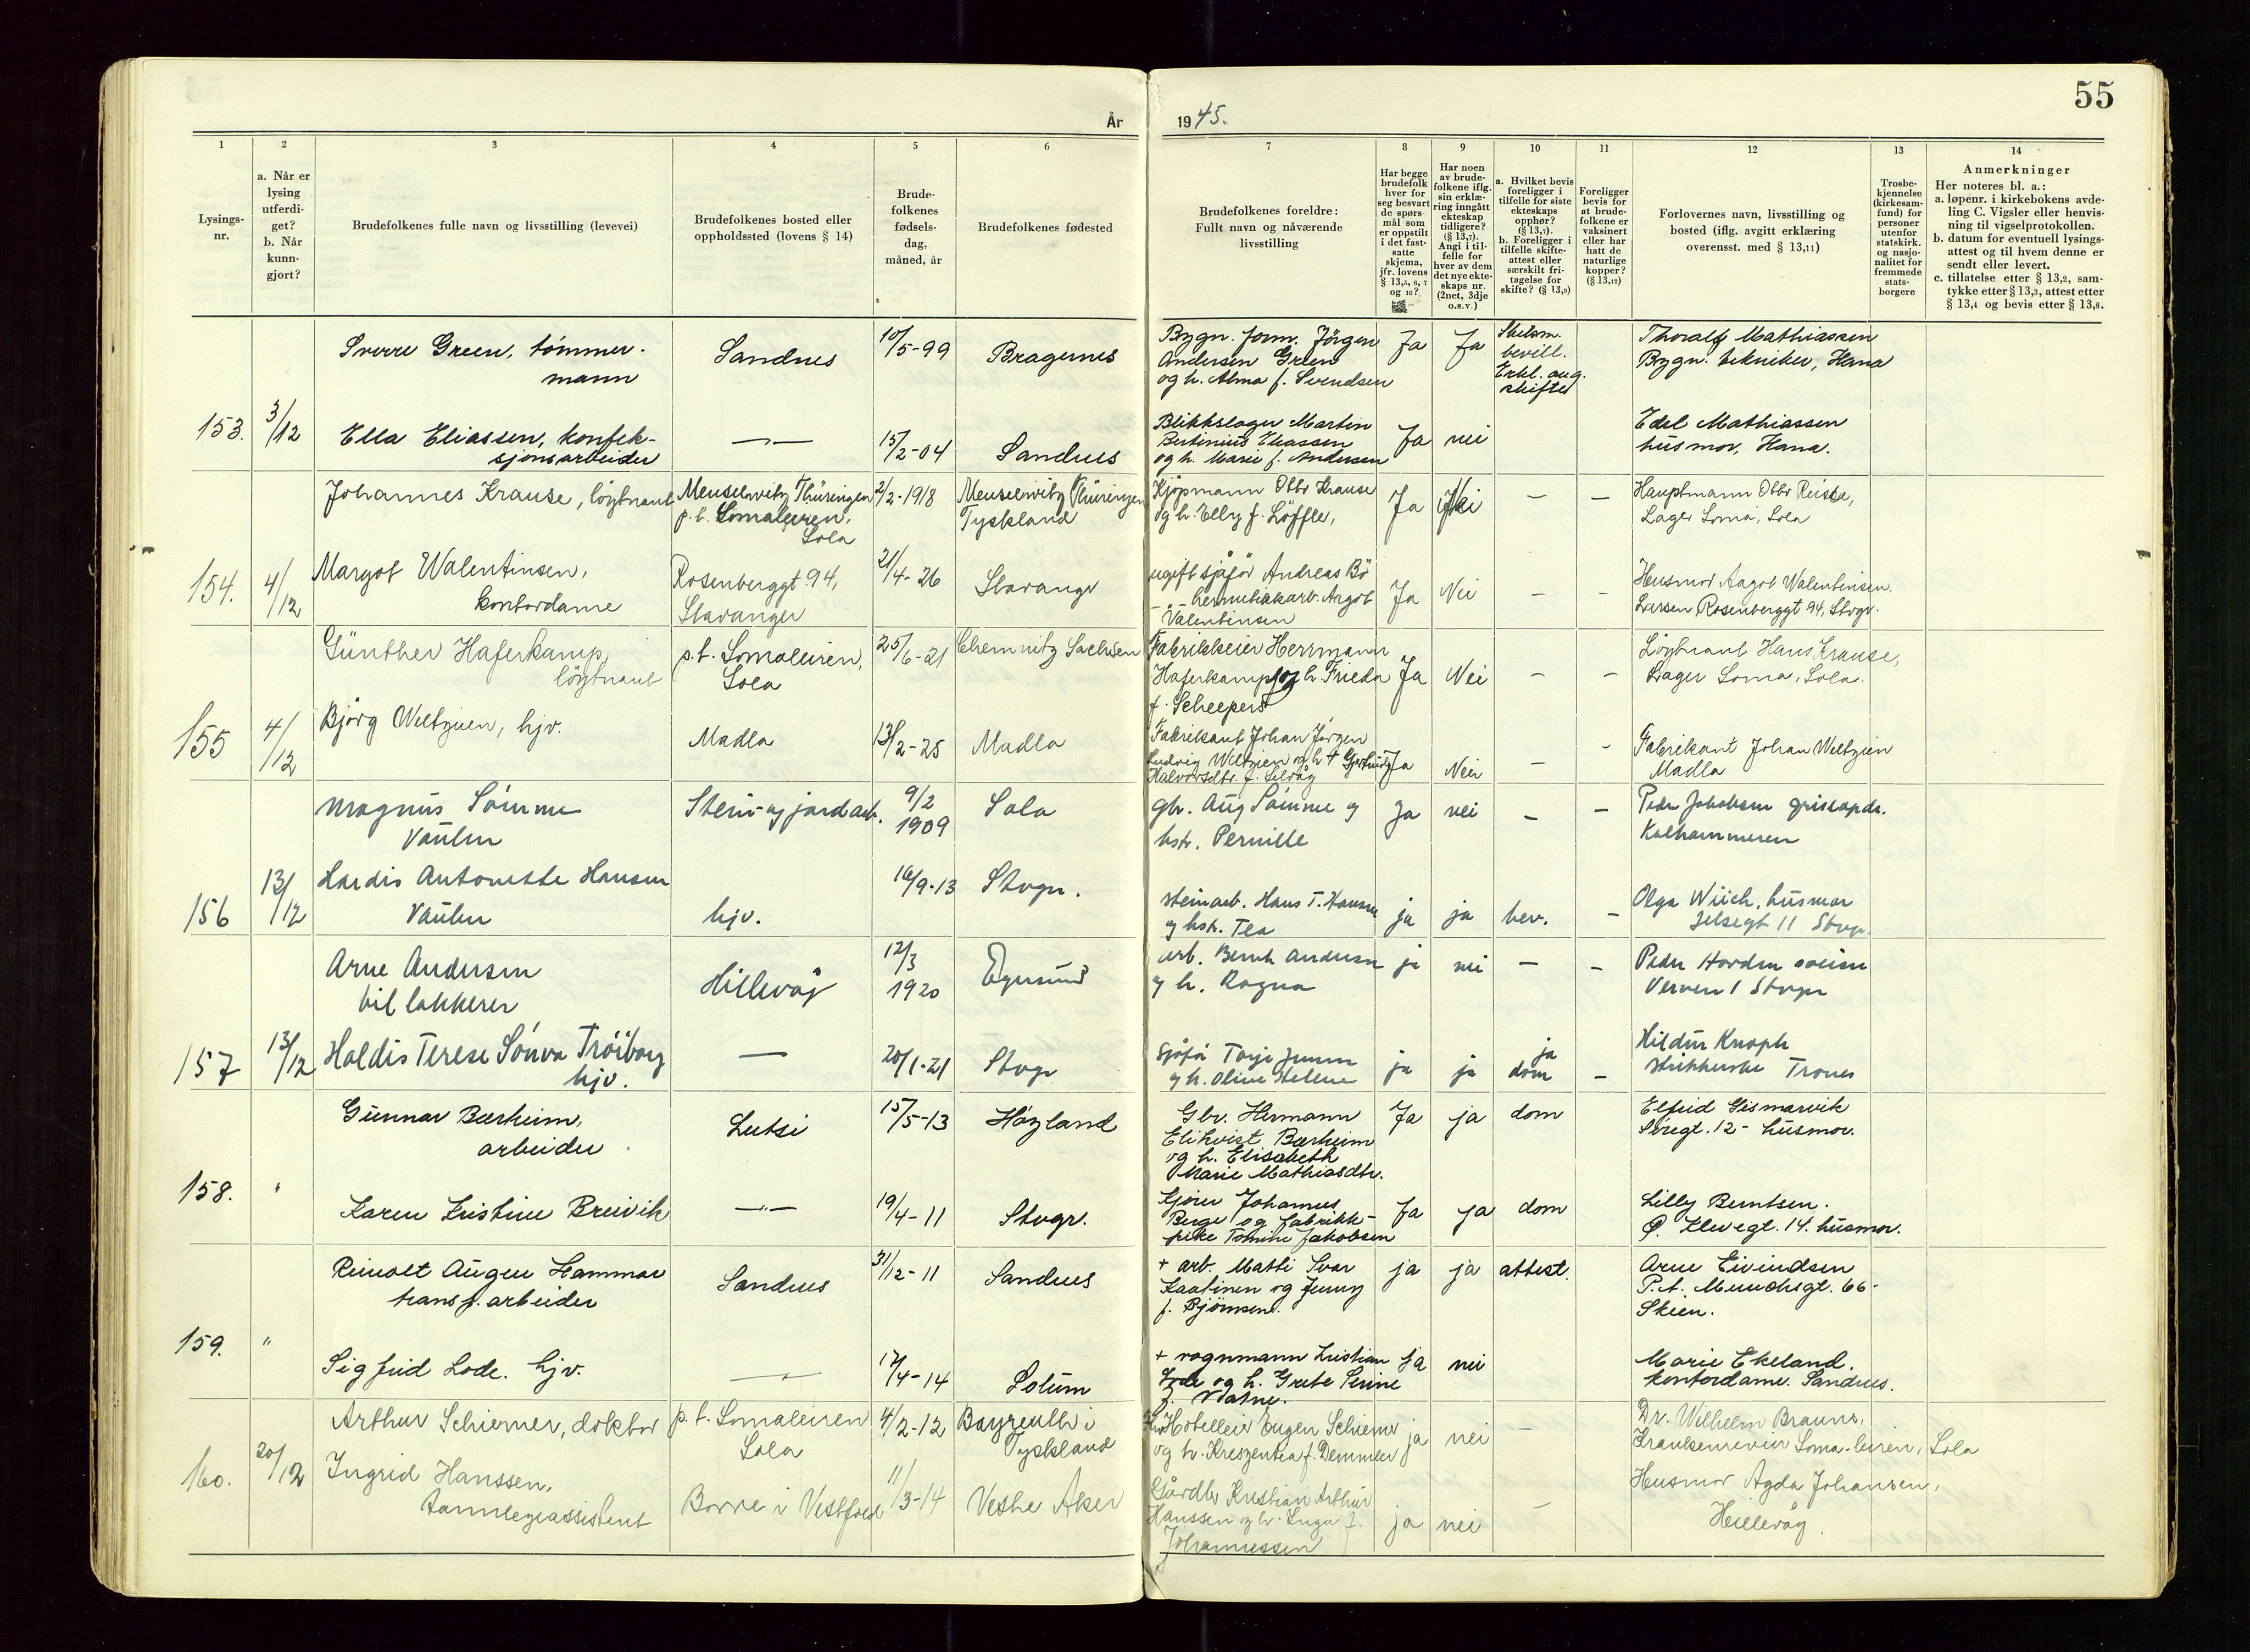 55
År 1945.
1 2 3 4 5 6 7 8 9 10 11 12 13 14
Lysings-
nr.
a. Når er
lysing
utferdi-
get?
b. Når
kunn-
gjort?
Brudefolkenes fulle navn og livsstilling (levevei)
Brudefolkenes bosted eller
oppholdssted (lovens § 14)
Brude-
folkenes
fødsels-
dag,
måned, år
Brudefolkenes fødested
Brudefolkenes foreldre:
Fullt navn og nåværende
livsstilling
Har begge
brudefolk
hver for
seg besvart
de spørs-
mål som
er oppstilt
i det fast-
satte
skjema,
jfr. lovens
§ 13,5, 6, 7
og 10?
Har noen
av brude-
folkene iflg.
sin erklæ-
ring inngått
ekteskap
tidligere?
(§ 13,7).
Angi i til-
felle for
hver av dem
det nye ekte-
skaps nr.
(2net, 3dje
o.s.v.)
a. Hvilket bevis
foreligger i
tilfelle for siste
ekteskaps
opphør?
(§ 13,7).
b. Foreligger i
tilfelle skifte-
attest eller
særskilt fri-
tagelse for
skifte? (§ 13,9)
Foreligger
bevis for
at brude-
folkene er
vaksinert
eller har
hatt de
naturlige
kopper?
(§ 13,12)
Forlovernes navn, livsstilling og
bosted (iflg. avgitt erklæring
overensst. med § 13,11)
Trosbe-
kjennelse
(kirkesam-
fund) for
personer
utenfor
statskirk.
og nasjo-
nalitet for
fremmede
stats-
borgere
Anmerkninger
Her noteres bl. a.:
a. løpenr. i kirkebokens avde-
ling C. Vigsler eller henvis-
ning til vigselprotokollen.
b. datum for eventuell lysings-
attest og til hvem denne er
sendt eller levert.
c. tillatelse etter § 13,2, sam-
tykke etter § 13,3, attest etter
§ 13,4 og bevis etter § 13,8.
Sverre Green, tømmer-
mann
Sandnes
10/5-99
Bragernes
Bygn. form. Jörgen
Andersen Green
og h. Alma f. Svendsen
Ja
Ja
Skilsm.
bevill.
Erkl. ang.
skifte
Thoralf Mathiassen
Bygn. tekniker, Hana
153.
3/12
Ella Eliassen, konfek-
sjonsarbeider
—"—
15/2-04
Sandnes
Blikkslager Martin
Bertinius Eliassen
og h. Marie f. Andersen
Ja
nei
Edel Mathiassen
husmor, Hana.
Johannes Krause, löytnant
Meuselwitz Thüringen
p.t. Somaleiren,
Sola
2/2-1918
Meuselwitz Thüringen
Tyskland
Kjøpmann Otto Krause
og h. Elly f. Löffler,
Ja
Nei
—
—
Hauptmann Otto
Lager Soma, Sola
154.
4/12
Margot Walentinsen,
kontordame
Rosenberggt. 94,
Stavanger
21/4-26
Stavanger
ugift sjåför Andreas Bö
—"— hermetikkarb. Aagot
Valentinsen
Ja
Nei
—
—
Husmor Aagot Walentinsen
Larsen Rosenberggt 94, Stvgr.
Günther Haferkamp,
löytnant
p.t. Somaleiren,
Sola
25/6-21
Chemnitz Sachsen
Fabrikkeier Herrmann
Haferkamp og h Frieda
f. Scheepers
Ja
Nei
—
—
Löytnant Hans Krause,
Lager Soma, Sola.
155
4/12
Bjørg Weltzien, hjv.
Madla
13/2-25
Madla
Fabrikant Johan Jørgen
Ludvig Weltzien og h +
Halvorsdtr. f. Selvåg
Ja
Nei
—
-
Fabrikant Johan Weltzien
Madla
Magnus Sömme
Vaulen
Stein- og jordarb.
9/2
1909
Sola
gbr. Aug Sömme og
hstr. Pernille
Ja
nei
—
—
Peder Jakobsen
Kalhammeren
156
13/12
Hardis Antonette Hansen
Vaulen
hjv.
16/9-13
Stvgr.
steinarb. Hans T. Hansen
og hstr. Tea
ja
ja
bev.
—
Olga Wiich, husmor
Jelsegt 11 Stvgr.
Arne Andersen
billakkerer
Hillevåg
12/3
1920
Egersund
arb. Bernh Andersen
og h. Ragna
ja
nei
—
—
Peder
Verven 1 Stvgr
157
13/12
Haldis Terese Sönva Tröiborg
hjv.
—
20/1-21
Stvgr
sjåför Torje Jensen
og h. Olive Helene
ja
ja
ja
dom
—
Hildur Knoph
Trones
Gunnar Bærheim,
arbeider
Lutsi
15/5-13
Høyland
Gbr. Hermann
Elikvist Bærheim
og h. Elisabeth
Marie Mathiasdtr.
Ja
ja
dom
Elfrid Gismarvik
12- husmor.
158.
"
Karen Kristine Breivik
—"—
19/4-11
Stvgr.
Kjörer Johannes
Berge og fabrikk-
pike Tomine Jakobsen
Ja
ja
dom
Lilly Berntsen.
Ø. Klevegt. 14. husmor.
Reinolt Augen Hammar
transp. arbeider
Sandnes
31/12-11
Sandnes
+ arb. Matti Ivar
Kaatinen og Jenny
f. Bjørnsen.
ja
ja
attest.
Arne Eivindsen
P.t. Munchsgt. 66-
Skien.
159.
"
Sigfrid Lode. hjv.
—"—
17/4-14
Solum
+ vognmann Kristian
Lode og h. Grete Serine
f. Vatne.
ja
nei
Marie Ekeland.
kontordame. Sandnes.
Arthur Schiemer, doktor
p.t. Somaleiren
Sola
4/2-12
Bayreuth i
Tyskland
Hotelleier Eugen Schiemer
og h. Kreszentia f. Demmler
ja
nei
—
Dr. Wilhelm Brauns,
Krankenrevier Soma-leiren, Sola
160.
20/12
Ingrid Hanssen,
tannlegeassistent
Borre i Vestfold
11/3-14
Vestre Aker
Gårdbr Kristian Arthur
Hanssen og h. Inga f.
Johannessen
ja
nei
—
Husmor Agda Johansen,
Hillevåg.